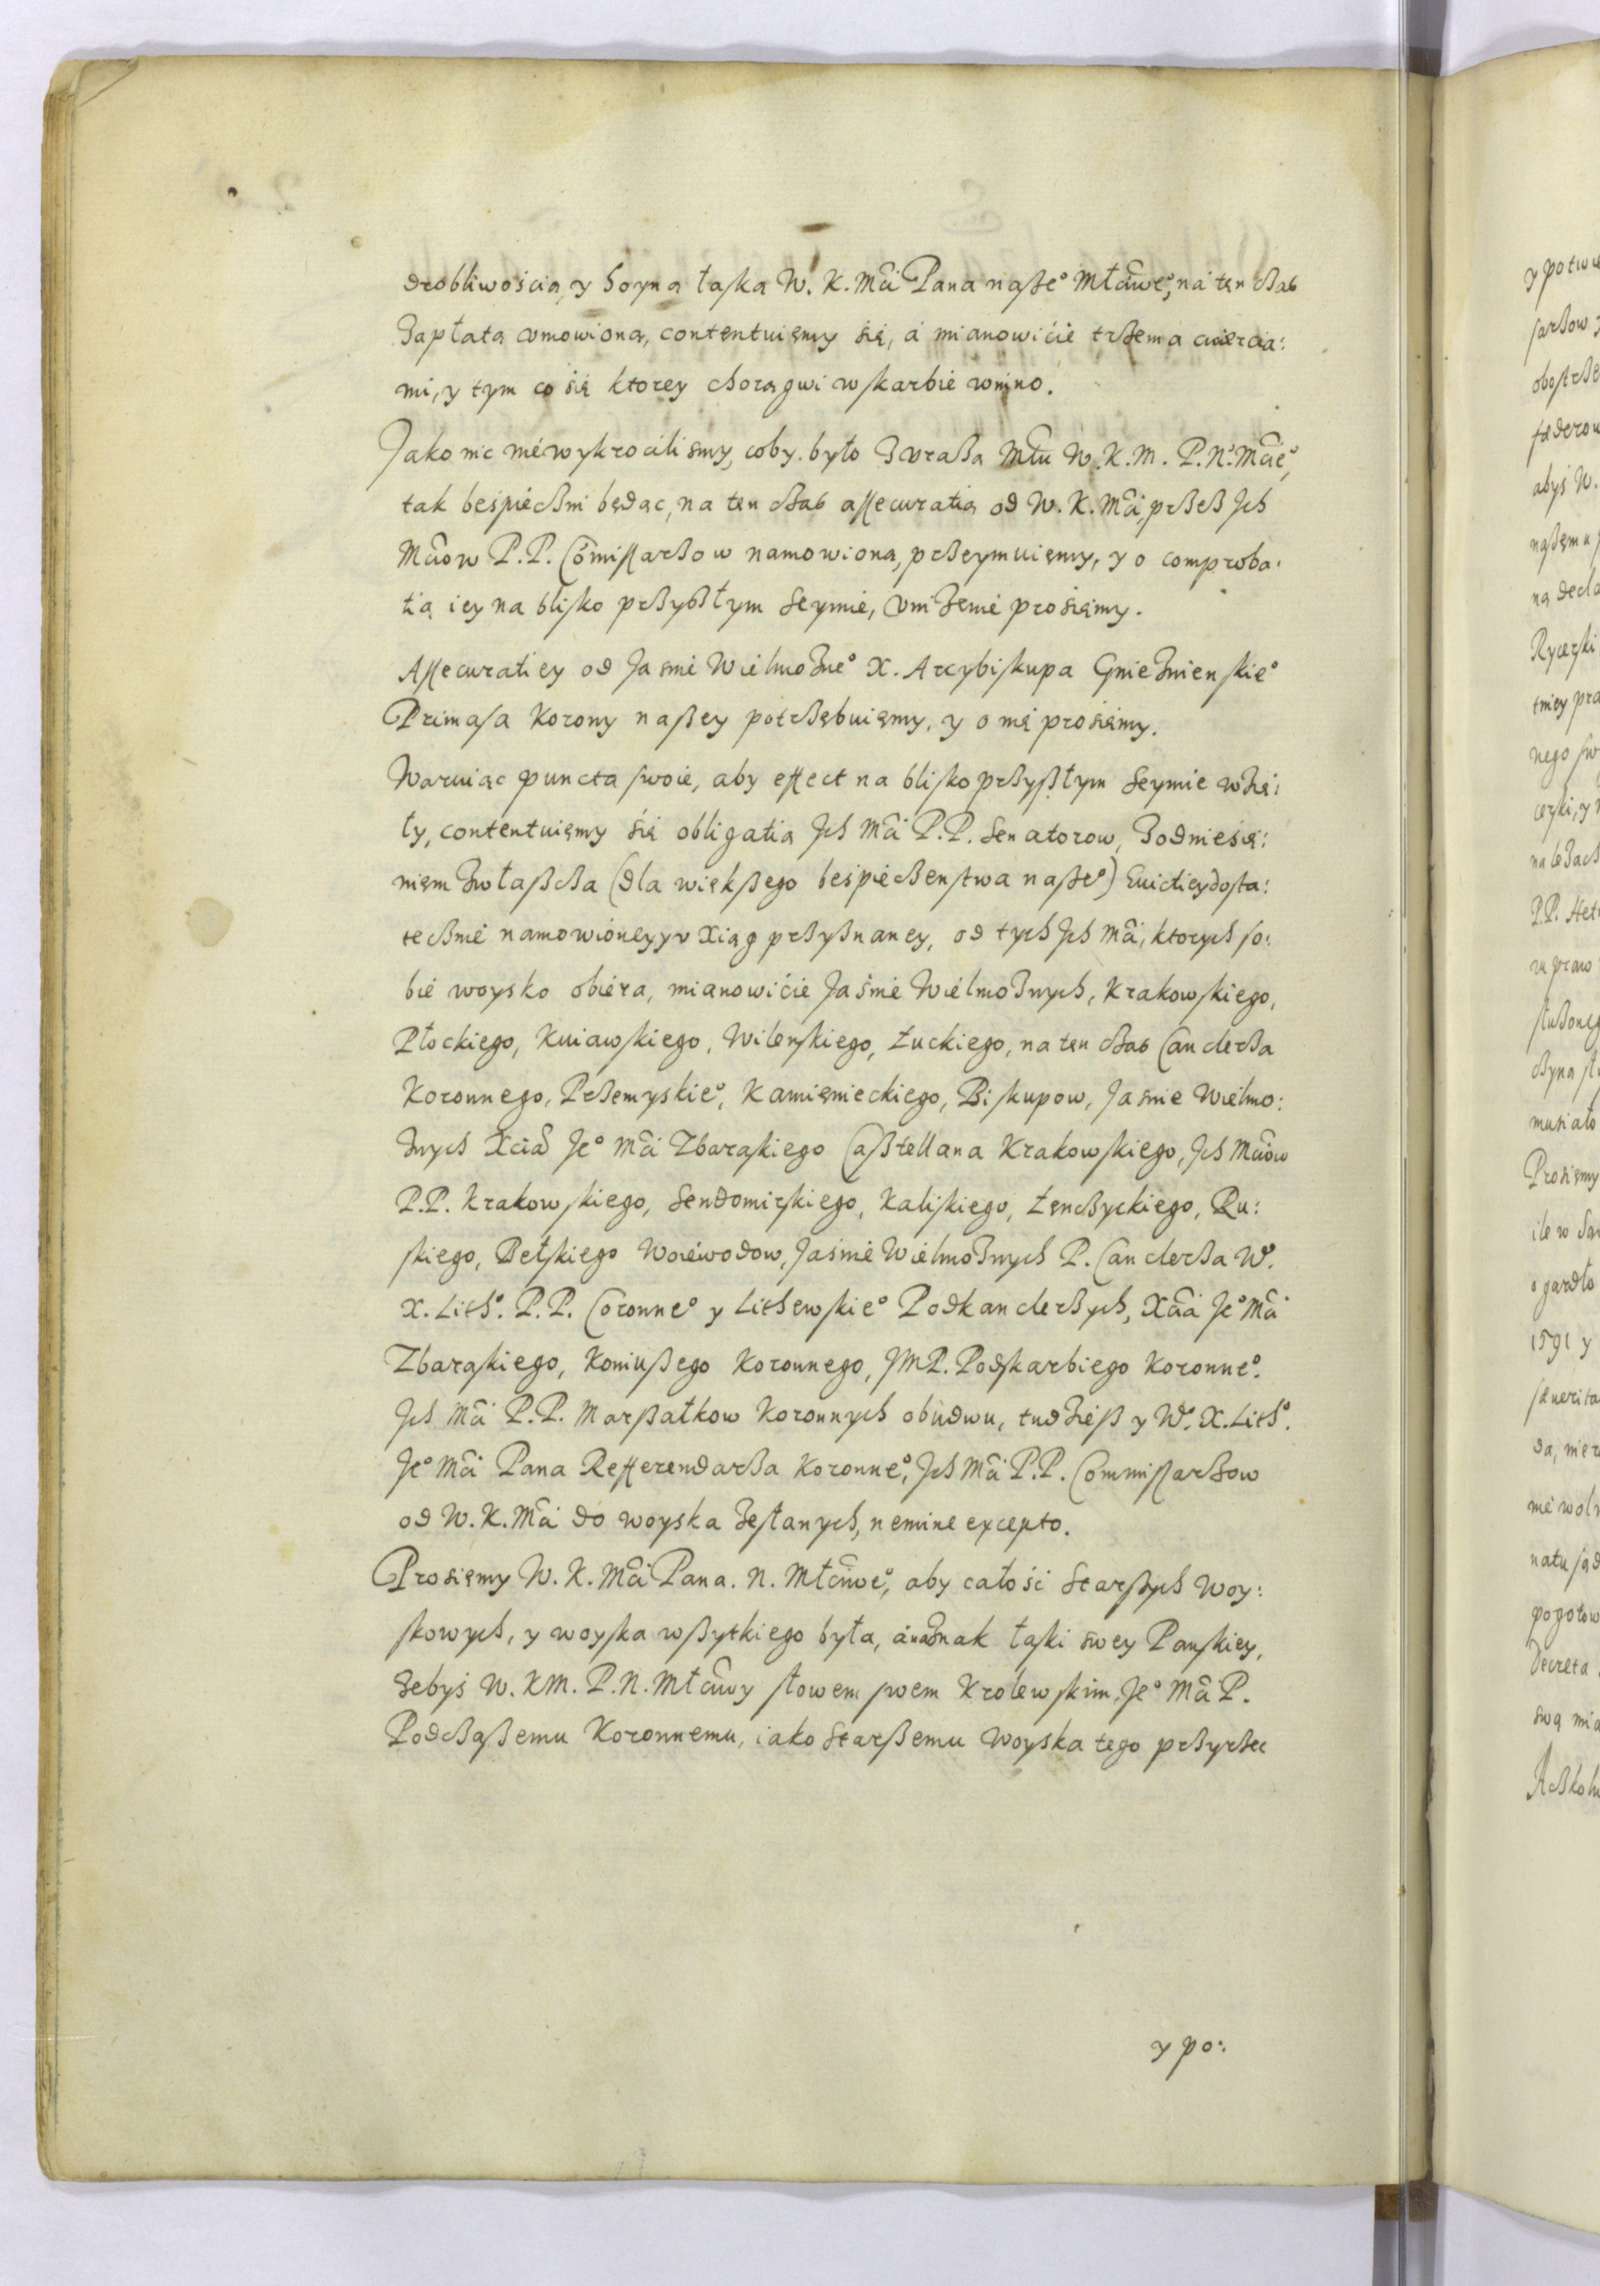 drobliwością, y hoyną łaską W. K. Mci Pana naszeº Młciweº, na ten czas
zapłatą umowioną, contentuięmy się, á mianowićie trzema cwierćia:
mi, y tym co się ktorey chorągwi w skarbie winno.
Jako nic niéwykroćilismy, coby było z urazą Młu W. K. M. P. Nº. Mcieº,
tak bespiécżni będąc, na ten czas assecuratią od W. K. Mci, przez Jch
Mciow P. P. Comissarzow namowioną, przeymuięmy, y o comproba:
tią iey na blisko przyszłym Seymié, uniżenié prosięmy.
Assecuratiey od Jasnié Wiélmożneº X. Arcybiskupa Gnieżnienskieº
Primasa Korony naszey potrzębuięmy, y o nię prosięmy.
Waruiąc puncta swoie, aby effect na blisko przyszłym Seymie wzię:
ły, contentuięmy się obligatią Jch Mci P. P. Senatorow, z odnieśię:
nięm zwłaszcza (dla większego bespiéczenstwa naszeº) Euictiey dosta:
tecznié namowioney y v Xiąg przyznaney, od tych Jch Mci, ktorych so:
bié woysko obiéra, mianowićie Jaśnié Wiélmożnych, Krakowskiego,
Płockiego, Kuiawskiego, Wilenskiego, Łuckiego, na ten czas Canclerza
Koronnego, Przemyskieº, Kamięnieckiego, Biskupow, Jasnie Wielmo:
żnych Xcia Jeº Mci Zbaraskiego Casztellana Krakowskiego, Jch Mciow
P. P. Krakowskiego, Sendomirskiego, Kaliskiego, Łęnczyckiego, Ru:
skiego, Bełskiego Woiéwodow, Jaśnié Wiélmożnych P. Canclerza Wº.
X. Lithº. P. P. Coronneº y Lithewskieº Podkanclerzych, Xcia Jeº Mci
Zbaraskiego, Koniuszego Koronnego, JMP. Podskarbiego Koronneº.
Jch Mci P. P. Marszałkow Koronnych obudwu, tudziész y Wº. X. Lithº.
Jeº Mci Pana Refferendarza Koronneº, Jch Mci P. P. Commissarzow
od W. K. Mci do woyska zesłanych, nemine excepto.
Prosięmy W. K. Mci Pana. N. Młciweº, aby całość Starszych Woy:
skowych, y woyska wszytkiego była, á na znak łaski swey Panskiey,
żebyś W. KM. P. N. Młciwy słowem swem Krolewskim, Jeº Mci P.
Podczaszemu Koronnemu, iako Starszemu Woyska tego przyrzec
y po: